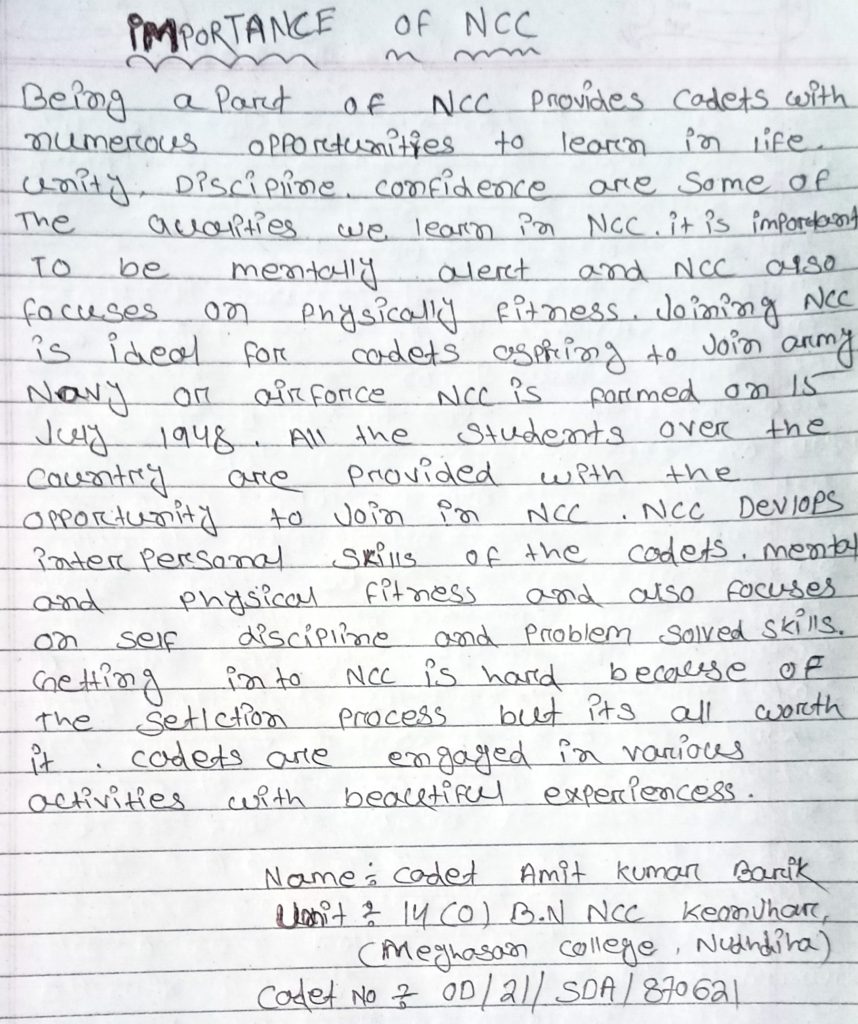 IMPORTANCE OF NCC
Being a Part of NCC provides Cadets with
numerous opportunities to learn in life.
unity, Discipline, confidence are Some of
The qualities we learn in NCC. it is important
To be mentally alert and NCC also
focuses on physically fitness. Joining NCC
is ideal for cadets aspiring to Join army
Navy or airforce NCC is formed on 15
July 1948. All the Students over the
Country are provided with the
opportunity to Join in NCC. NCC Devlops
inter personal skills of the cadets. mental
and physical fitness and also focuses
on self discipline and problem solved skills.
Getting in to NCC is hard because of
the setlction process but its all worth
it. cadets are engaged in various
activities with beautiful experiencess.
Name : cadet Amit kumar Barik
Unit : 14 (O) B.N NCC Keonjhar,
(Meghasan college, Nudhdiha)
Cadet No : OD/21/SDA/870621